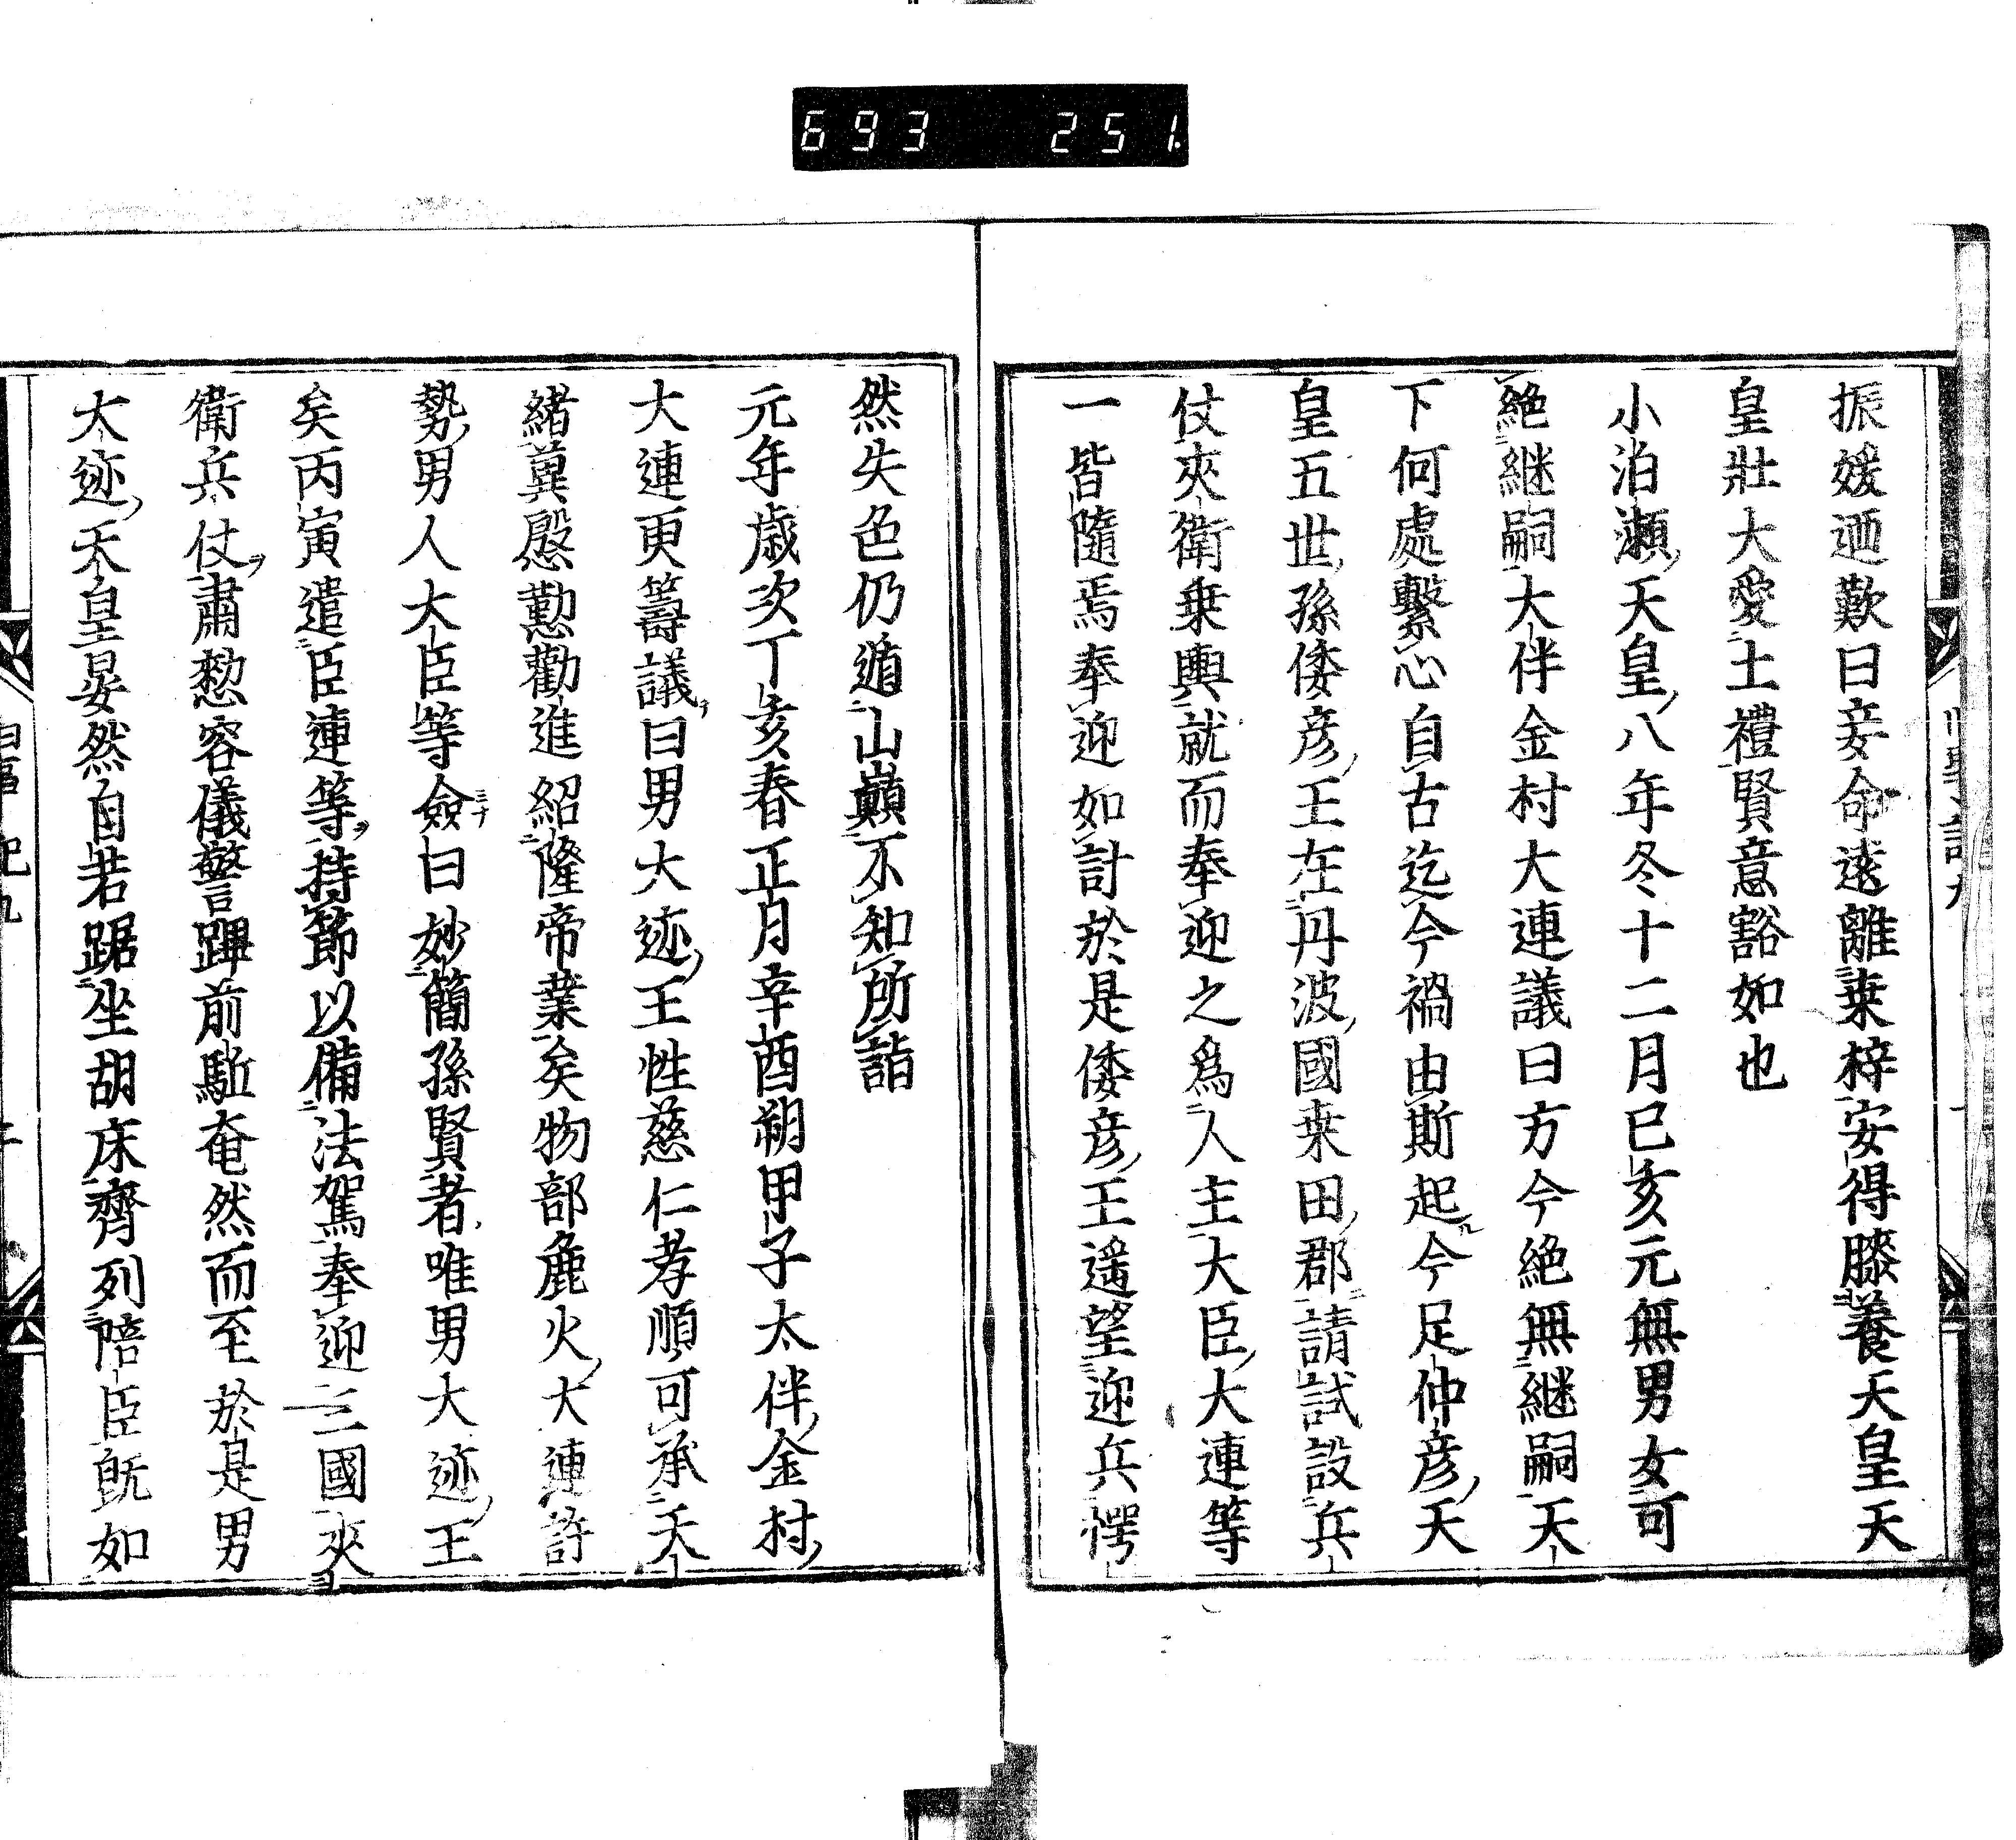 693 251.
振媛迺歎曰妾命遠離桒梓安得膝養天皇天
皇壯大愛土禮賢意豁如也
小泊瀬天皇八年冬十二月巳亥元無男女可
絶継嗣大伴金村大連議曰方今絶無継嗣天
下何處繫心自古迄今禍由斯起今足仲彦天
皇五世孫倭彦王在丹波國桒田郡請試設兵
仗夾衛乗輿就而奉迎之爲人主大臣大連等
一皆隨焉奉迎如計於是倭彦王遥望迎兵愕
然失色仍遁山巓不知所詣
元年歳次丁亥春正月辛酉朔甲子太伴金村
大連更籌議曰男大迹王性慈仁孝順可承天
緒冀慇懃勸進紹隆帝業矣物部麁火大連許
勢男人大臣等僉曰妙簡孫賢者唯男大迹王
矣丙寅遣臣連等持節以備法駕奉迎三國夾
衛兵仗肅愸容儀警蹕前駈奄然而至於是男
大迹天皇晏然自若踞坐胡床齊列陪臣既如